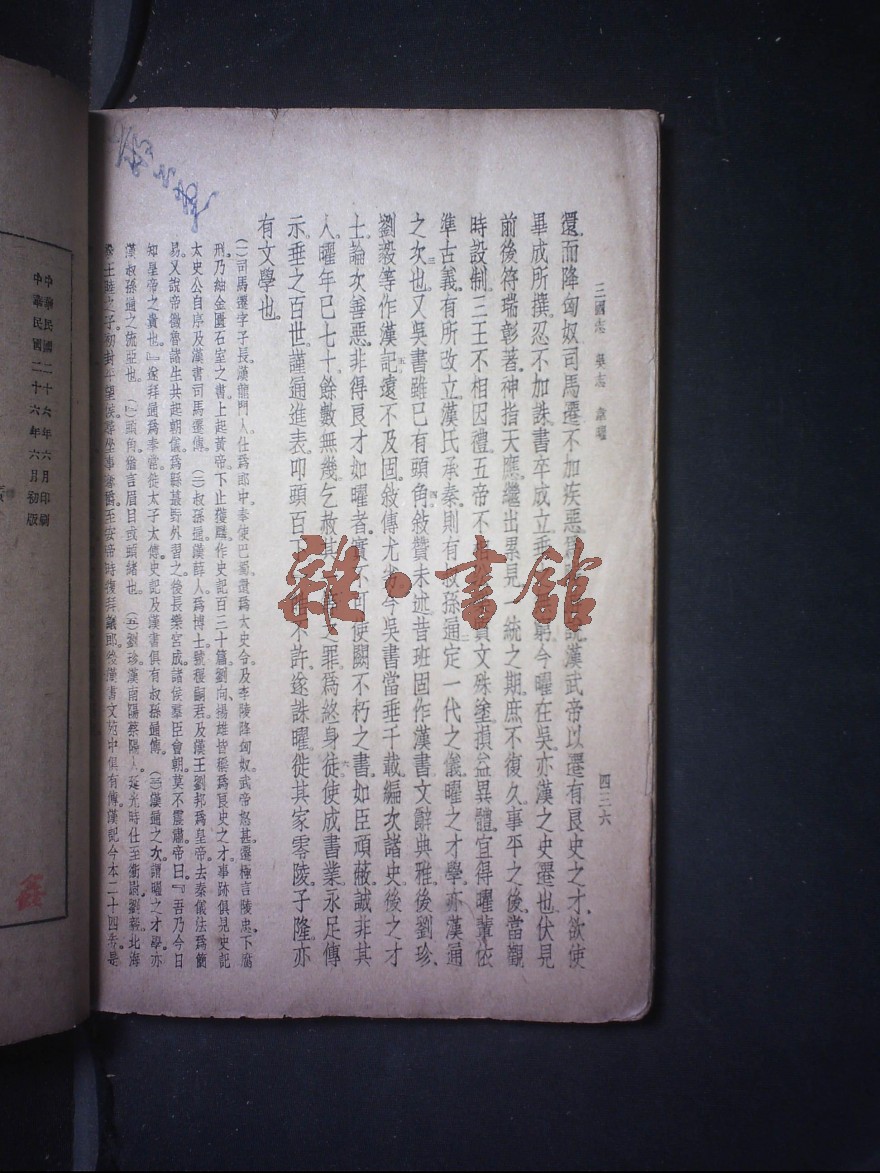 三國志 吳志 韋曜 四三六
還、而降匈奴、司馬遷不加疾惡、爲 說、漢武帝以遷有良史之才、欲使
畢成所撰、忍不加誅、書卒成立、垂 窮、今曜在吳、亦漢之史遷也。伏見
前後符瑞彰著、神指天應、繼出累見、一統之期、庶不復久。事平之後、當觀
時設制、三王不相因禮、五帝不 質文殊塗、損益異體、宜得曜輩、依
準古義、有所改立。漢氏承秦、則有叔孫通定一代之儀、曜之才學、亦漢通
之次也。又吳書雖已有頭角、敍贊未述。昔班固作漢書、文辭典雅、後劉珍、
劉毅等作漢記、遠不及固、敍傳尤劣。今吳書當垂千載、編次諸史、後之才
士、論次善惡、非得良才如曜者、實不可使闕不朽之書。如臣頑蔽、誠非其
人。曜年已七十、餘數無幾、乞赦其 之罪、爲終身徒、使成書業、永足傳
示、垂之百世。謹通進表、叩頭百下。 不許、遂誅曜、徙其家零陵。子隆、亦
有文學也。
(一)司馬遷字子長、漢龍門人、仕爲郎中、奉使巴蜀、還爲太史令。及李陵降匈奴、武帝怒甚、遷極言陵忠、下腐
刑、乃紬金匱石室之書、上起黃帝、下止獲麟、作史記百三十篇、劉向、揚雄皆稱爲良史之才。事跡俱見史記
太史公自序及漢書司馬遷傳。 (二)叔孫通、漢薛人、爲博士、號稷嗣君。及漢王劉邦爲皇帝、去秦儀法爲簡
易、又說帝徵魯諸生共起朝儀、爲縣蕞野外習之。後長樂宮成、諸侯羣臣會朝、莫不震肅、帝曰、『吾乃今日
知皇帝之貴也。』遂拜通爲奉常、徙太子太傅。史記及漢書俱有叔孫通傳。 (三)漢通之次、謂曜之才學、亦
漢叔孫通之流亞也。 (四)頭角、猶言眉目或頭緒也。 (五)劉珍、漢南陽蔡陽人、延光時仕至衞尉。劉毅、北海
敬王睦之子、初封平望侯、尋坐事奪爵、至安帝時復拜議郎。後漢書文苑中俱有傳。漢記今本二十四卷、
中華民國二十六年六月印刷
中華民國二十六年六月初版
雜·書館